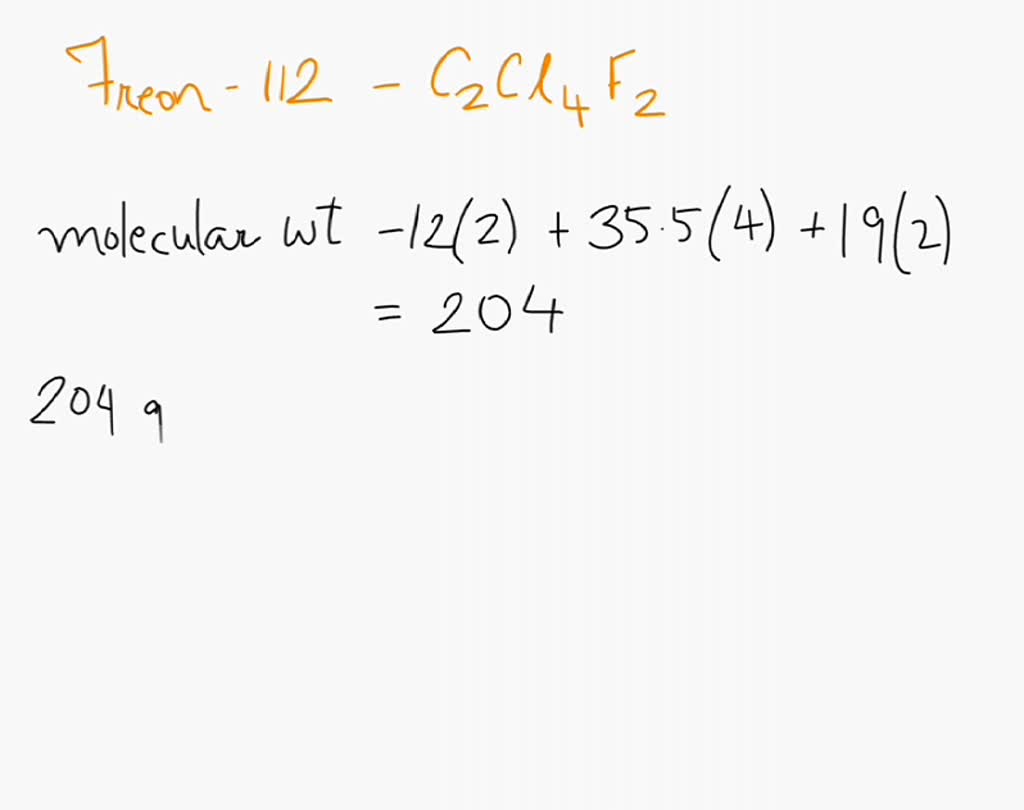 Freon - 112 - C₂Cl₄F₂
molecular wt - 12(2) + 35.5(4) + 19(2)
= 204
204 g